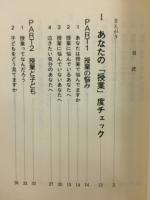 まえがき 3
目次
I あなたの「授業」度チェック 13
PART1 授業の悩み 14
1 あなたは授業で悩んでますか 14
2 授業に悩んでいるあなたへ
3 授業に悩んでいないあなたへ
4 泣きたい気分のあなたへ
PART2 授業と子ども
1 授業ってなんだろう
2 子どもをどう見てますか